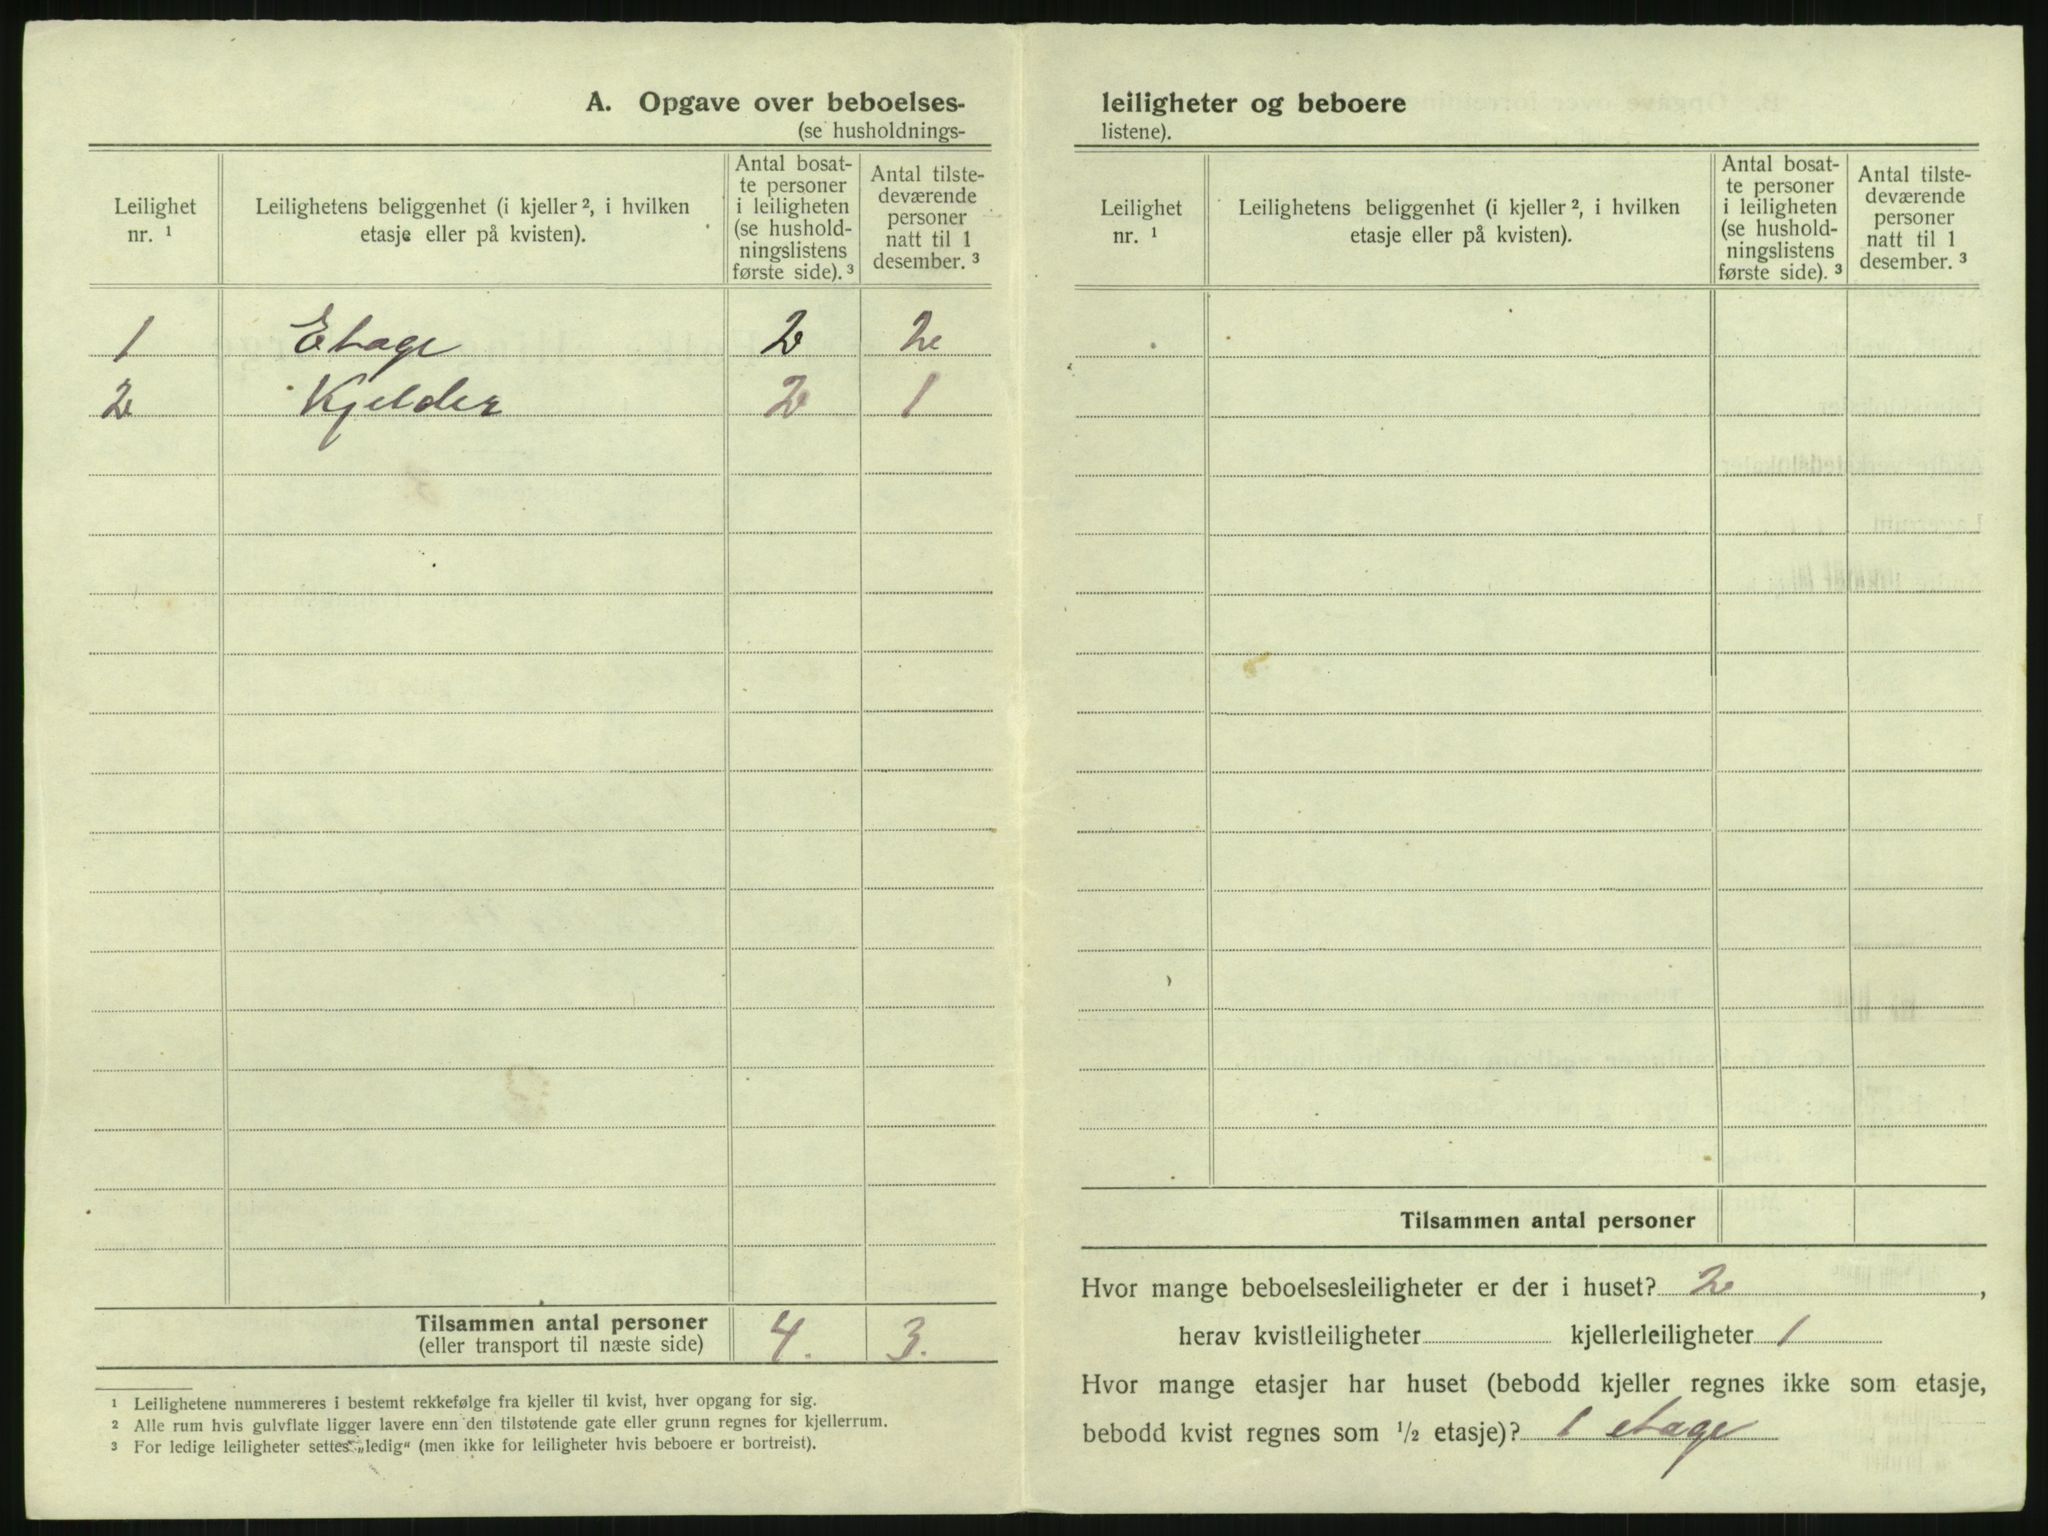 A. Opgave over beboelses-
(se husholdnings-
Leilighet nr. ¹
Leilighetens beliggenhet (i kjeller ², i hvilken etasje eller på kvisten).
Antal bosat-
te personer
i leiligheten
(se hushold-
ningslistens
første side). ³
Antal tilste-
deværende
personer
natt til 1
desember. ³
1 Etage 2 2
2 Kjelder 2 1
Tilsammen antal personer 4. 3.
(eller transport til næste side)
¹ Leilighetene nummereres i bestemt rekkefølge fra kjeller til kvist, hver opgang for sig.
² Alle rum hvis gulvflate ligger lavere enn den tilstøtende gate eller grunn regnes for kjellerrum.
³ For ledige leiligheter settes „ledig“ (men ikke for leiligheter hvis beboere er bortreist).
leiligheter og beboere
listene).
Leilighet nr. ¹
Leilighetens beliggenhet (i kjeller ², i hvilken etasje eller på kvisten).
Antal bosat-
te personer
i leiligheten
(se hushold-
ningslistens
første side). ³
Antal tilste-
deværende
personer
natt til 1
desember. ³
Tilsammen antal personer
Hvor mange beboelsesleiligheter er der i huset? 2,
herav kvistleiligheter kjellerleiligheter 1
Hvor mange etasjer har huset (bebodd kjeller regnes ikke som etasje,
bebodd kvist regnes som ½ etasje)? 1 etage